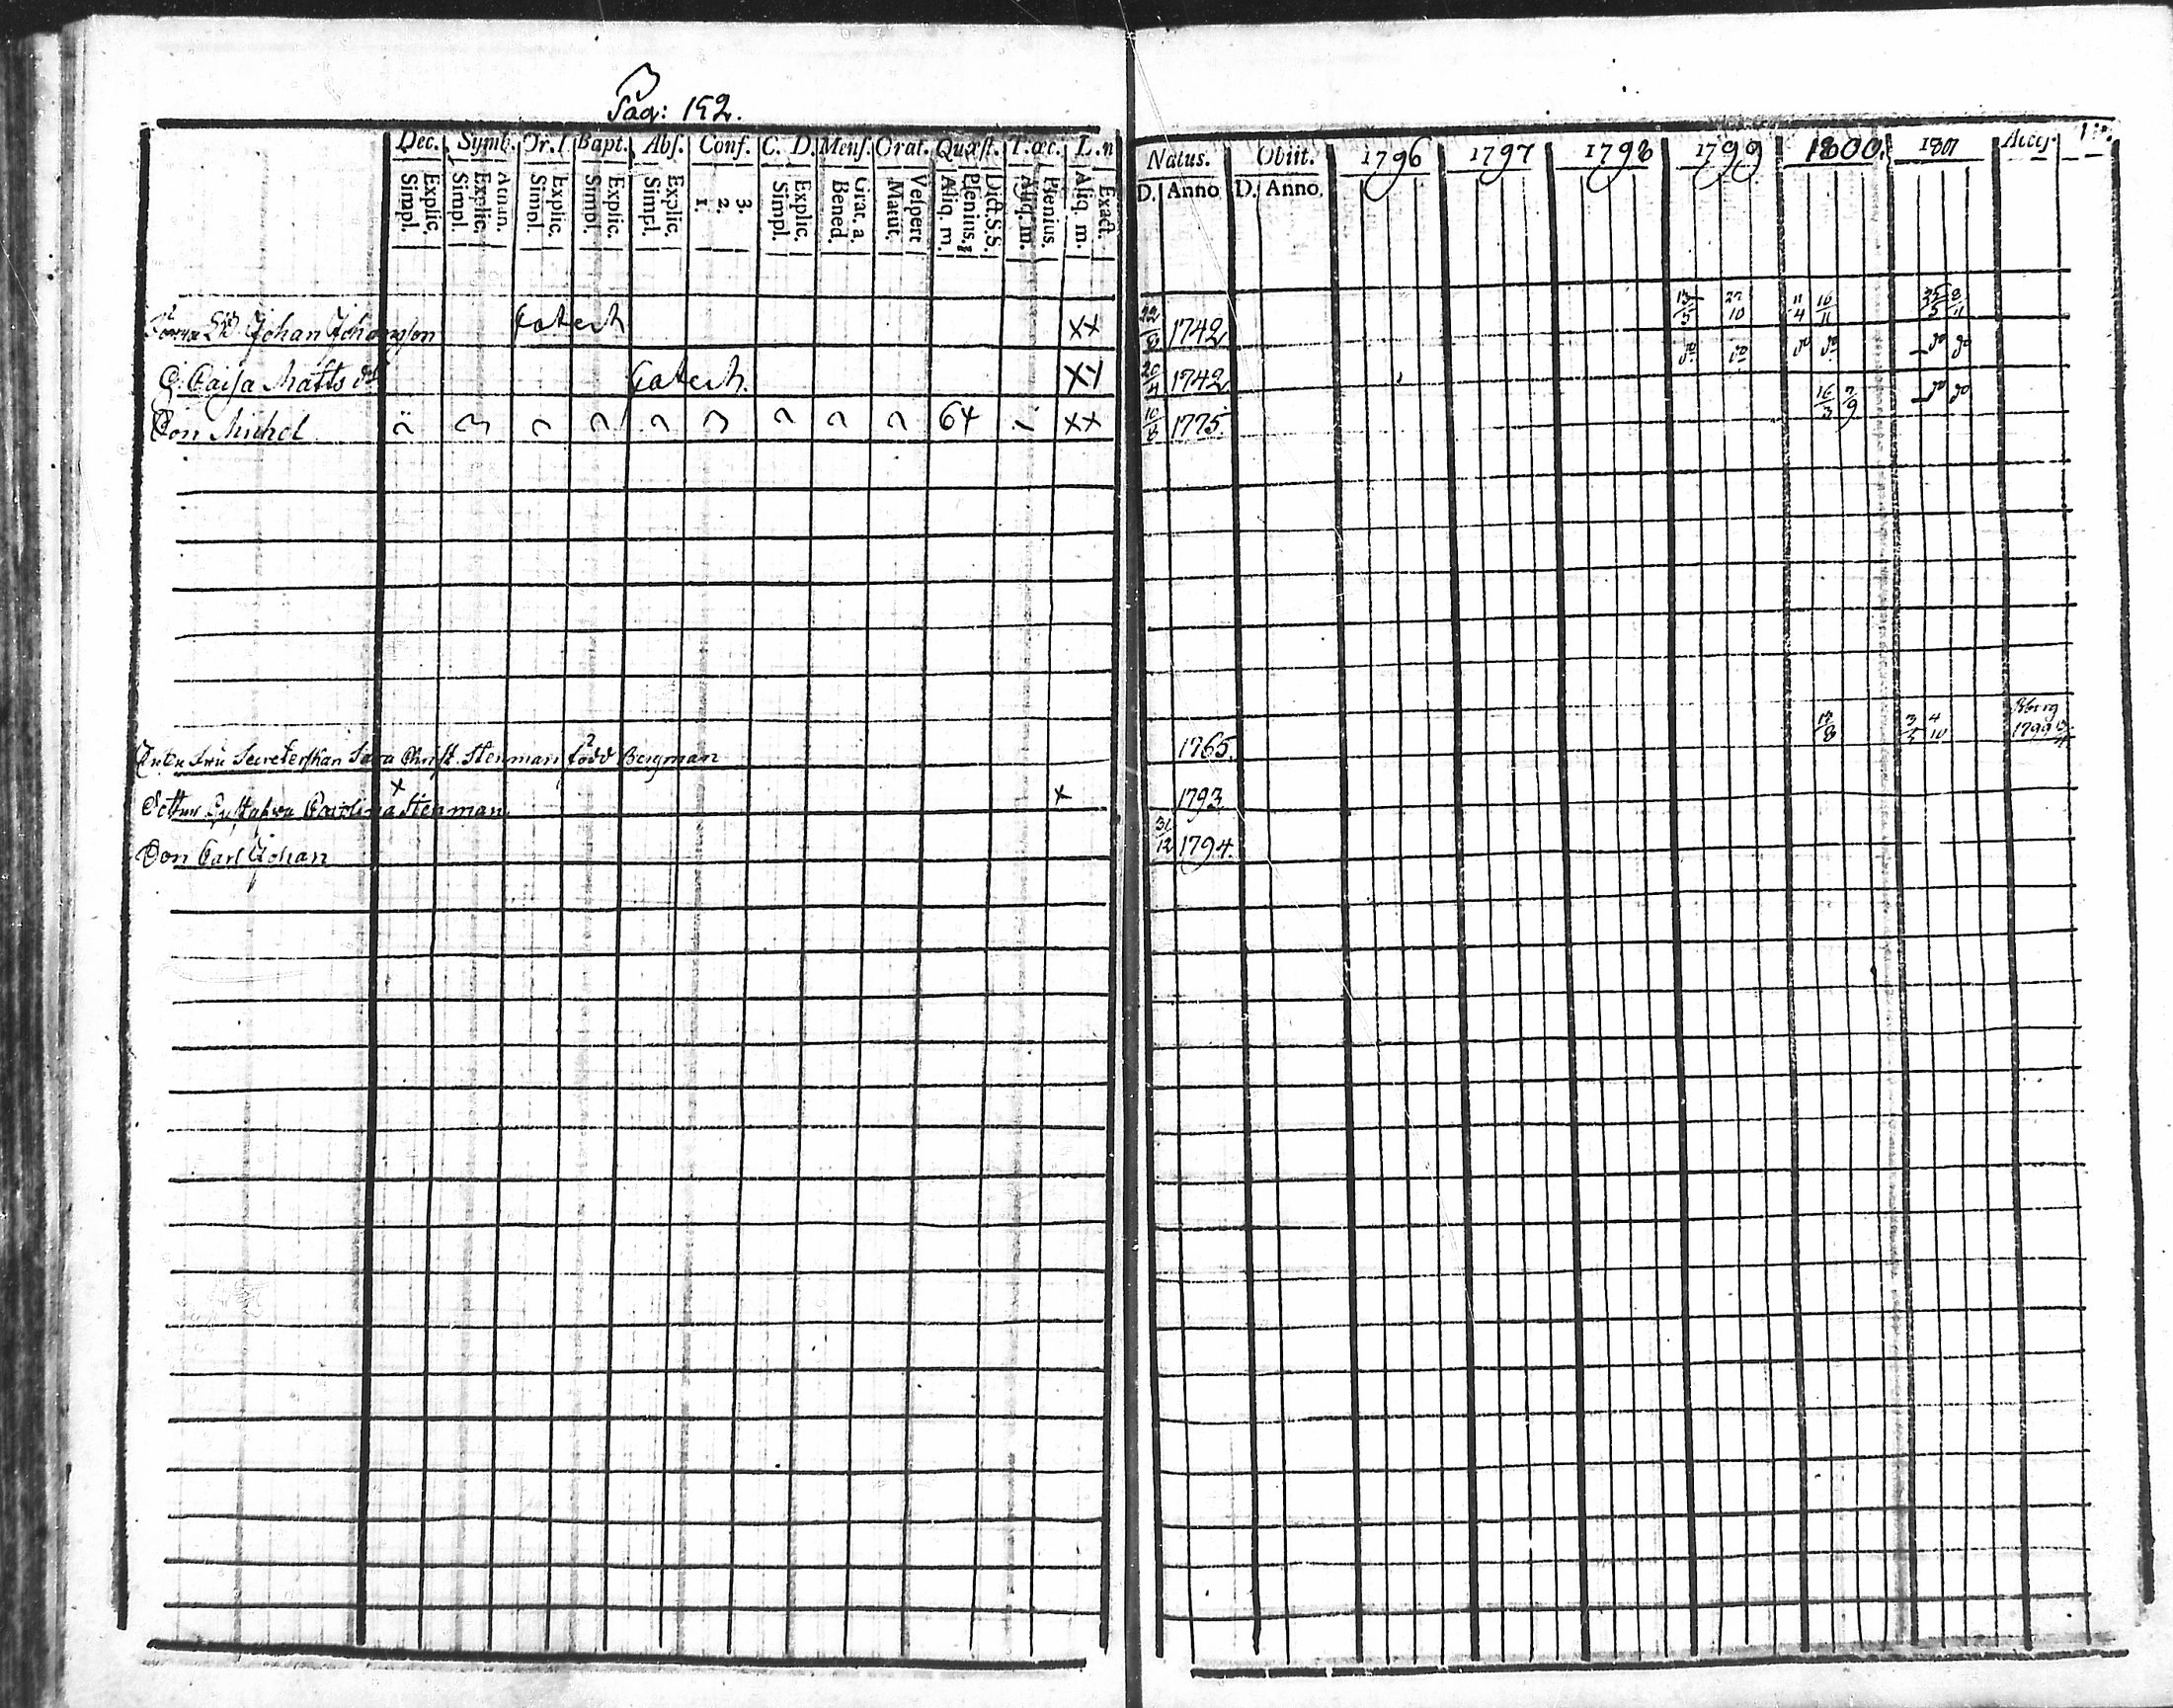 Pag: 152.
Dec. Symb. Or. Bapt. Abſ. Conf. C. D. Menſ. Orat. Quæſt. T. œc. L. n
Simpl. Explic. Simpl. Explic. Athan. Simpl. Explic. Simpl. Explic. Simpl. Explic. 1. 2. 3. Simpl. Explic. Bened. Grat. a. Matut. Veſpert Aliq. m. Plenius. Dict. S.S. Aliq. m. Plenius. Aliq. m. Exact.
Natus. Obiit. 1796 1797 1798 1799 1800. 1801 Accy.
D. Anno D. Anno
Johan Johansson Catech xx 22/8 1742 22/10 11/4 16/11 8/11
H. Caisa Matts dr Catech. 20/4 1742
Son Michel 64 xx 10/8 1775. 16/3 7/9
Enke Fru Secreterskan Sara Christ. Stenman född Bergman 1765. 3/5 4/10 1799
Dotter Gustafva Carolina Stenman x x 1793
Son Carl Johan 31/12 1794.